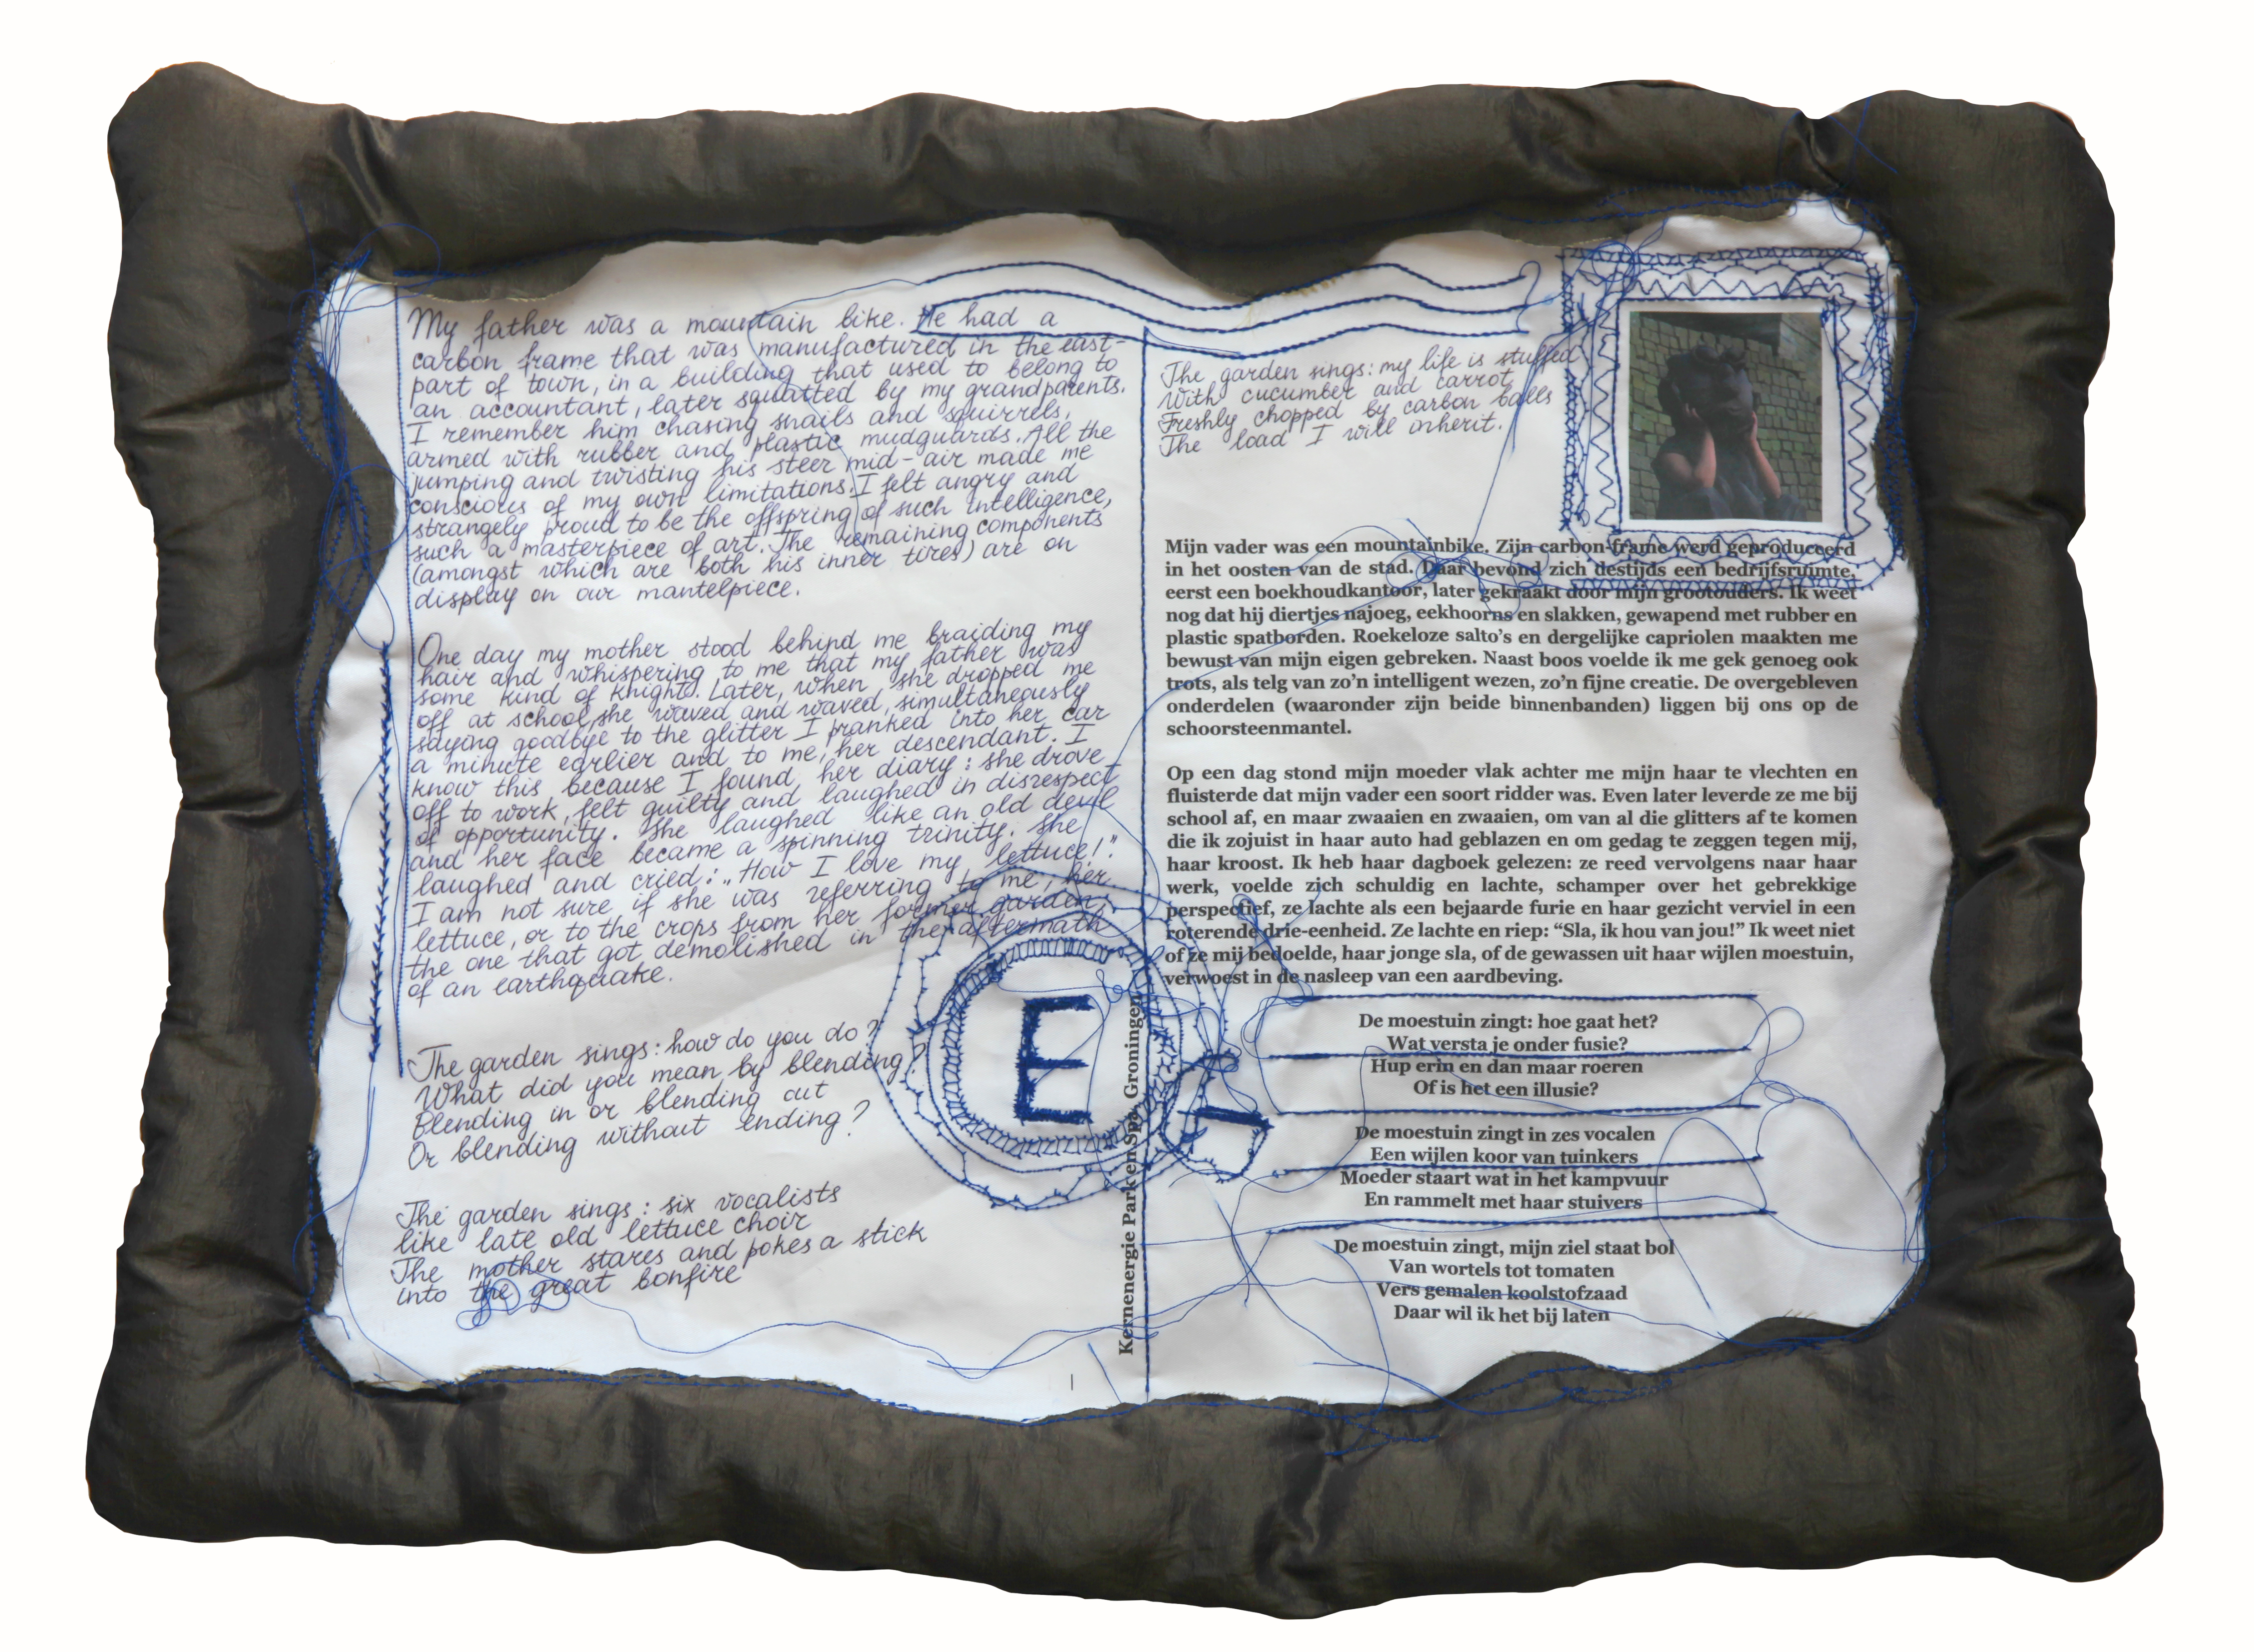 My father was a mountain bike. He had a
carbon frame that was manufactured in the east-
part of town, in a building that used to belong to
an accountant, later squatted by my grandparents.
I remember him chasing snails and squirrels,
armed with rubber and plastic mudguards. All the
jumping and twisting his steer mid-air made me
conscious of my own limitations. I felt angry and
strangely proud to be the offspring of such intelligence,
such a masterpiece of art. The remaining components
(amongst which are both his inner tires) are on
display on our mantelpiece.
One day my mother stood behind me braiding my
hair and whispering to me that my father was
some kind of knight. Later, when she dropped me
off at school, she waved and waved, simultaneously
saying goodbye to the glitter I pranked into her car
a minute earlier and to me, her descendant. I
know this because I found her diary: she drove
off to work, felt guilty and laughed in disrespect
of opportunity. She laughed like an old devil
and her face became a spinning trinity. She
laughed and cried: „How I love my lettuce!".
I am not sure if she was referring to me, her
lettuce, or to the crops from her former garden,
the one that got demolished in the aftermath
of an earthquake.
The garden sings: how do you do?
What did you mean by blending?
Blending in or blending out
Or blending without ending?
The garden sings: six vocalists
like late old lettuce choir
The mother stares and pokes a stick
into the great bonfire
E
Kernenergie Parkken Spa, Groningen
The garden sings: my life is stuffed
With cucumber and carrot
Freshly chopped by carbon balls
The load I will inherit.
Mijn vader was een mountainbike. Zijn carbon-frame werd geproduceerd
in het oosten van de stad. Daar bevond zich destijds een bedrijfsruimte,
eerst een boekhoudkantoor, later gekraakt door mijn grootouders. Ik weet
nog dat hij diertjes najoeg, eekhoorns en slakken, gewapend met rubber en
plastic spatborden. Roekeloze salto's en dergelijke capriolen maakten me
bewust van mijn eigen gebreken. Naast boos voelde ik me gek genoeg ook
trots, als telg van zo'n intelligent wezen, zo'n fijne creatie. De overgebleven
onderdelen (waaronder zijn beide binnenbanden) liggen bij ons op de
schoorsteenmantel.
Op een dag stond mijn moeder vlak achter me mijn haar te vlechten en
fluisterde dat mijn vader een soort ridder was. Even later leverde ze me bij
school af, en maar zwaaien en zwaaien, om van al die glitters af te komen
die ik zojuist in haar auto had geblazen en om gedag te zeggen tegen mij,
haar kroost. Ik heb haar dagboek gelezen: ze reed vervolgens naar haar
werk, voelde zich schuldig en lachte, schamper over het gebrekkige
perspectief, ze lachte als een bejaarde furie en haar gezicht verviel in een
roterende drie-eenheid. Ze lachte en riep: “Sla, ik hou van jou!” Ik weet niet
of ze mij bedoelde, haar jonge sla, of de gewassen uit haar wijlen moestuin,
verwoest in de nasleep van een aardbeving.
De moestuin zingt: hoe gaat het?
Wat versta je onder fusie?
Hup erin en dan maar roeren
Of is het een illusie?
De moestuin zingt in zes vocalen
Een wijlen koor van tuinkers
Moeder staart wat in het kampvuur
En rammelt met haar stuivers
De moestuin zingt, mijn ziel staat bol
Van wortels tot tomaten
Vers gemalen koolstofzaad
Daar wil ik het bij laten